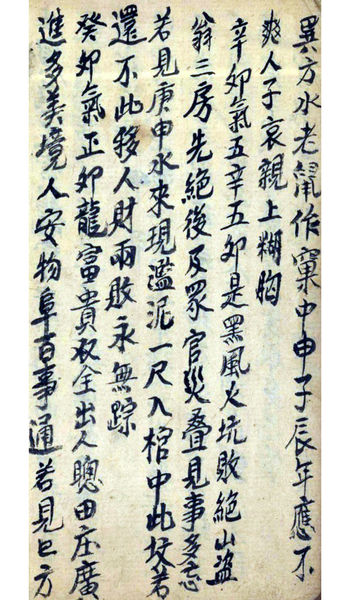 異方水老鼠作窠中申子辰年應不
爽人子哀親上糊胸
辛卯氣五辛五卯是黑風火坑敗絕山盜
翁三房先絕後及眾官災叠見事多忘
若見庚申水來現濫泥一尺入棺中此坟若
還不此移人財兩敗永無踪
癸卯氣正卯龍富貴双全出人聰田庄廣
進多美境人安物阜百事通若見巳方